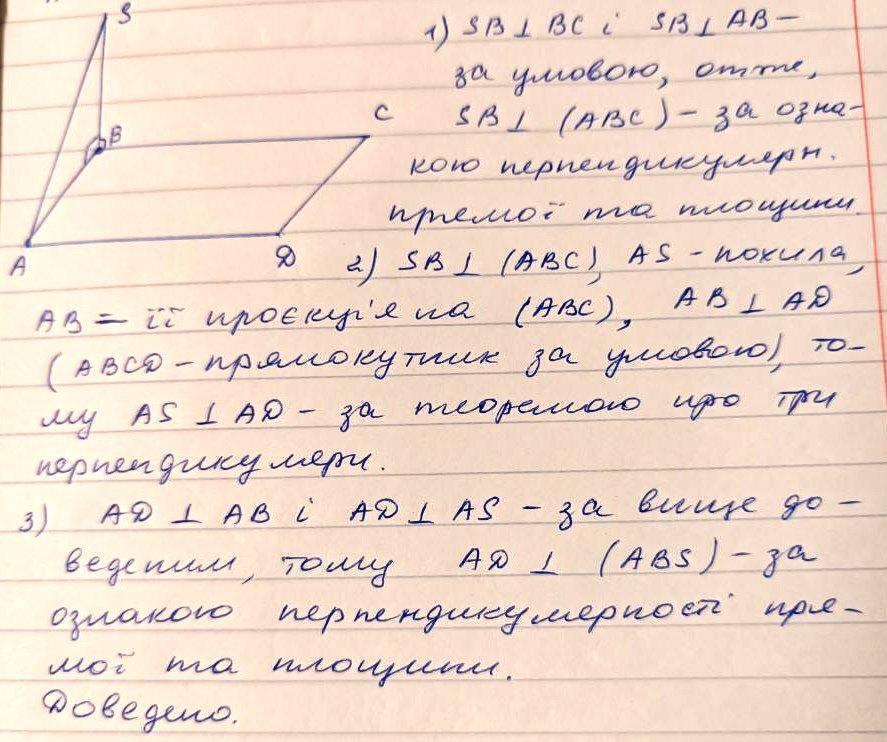 S
1) SB ⊥ BC і SB ⊥ AB –
за умовою, отже,
B
C
SB ⊥ (ABC) – за озна-
кою перпендикулярн.
прямої та площини.
A
D
2) SB ⊥ (ABC), AS – похила,
AB – її проєкція на (ABC), AB ⊥ AD
(ABCD – прямокутник за умовою), то-
му AS ⊥ AD – за теоремою про три
перпендикуляри.
3) AD ⊥ AB і AD ⊥ AS – за вище до-
веденим, тому AD ⊥ (ABS) – за
ознакою перпендикулярності пря-
мої та площини.
Доведено.